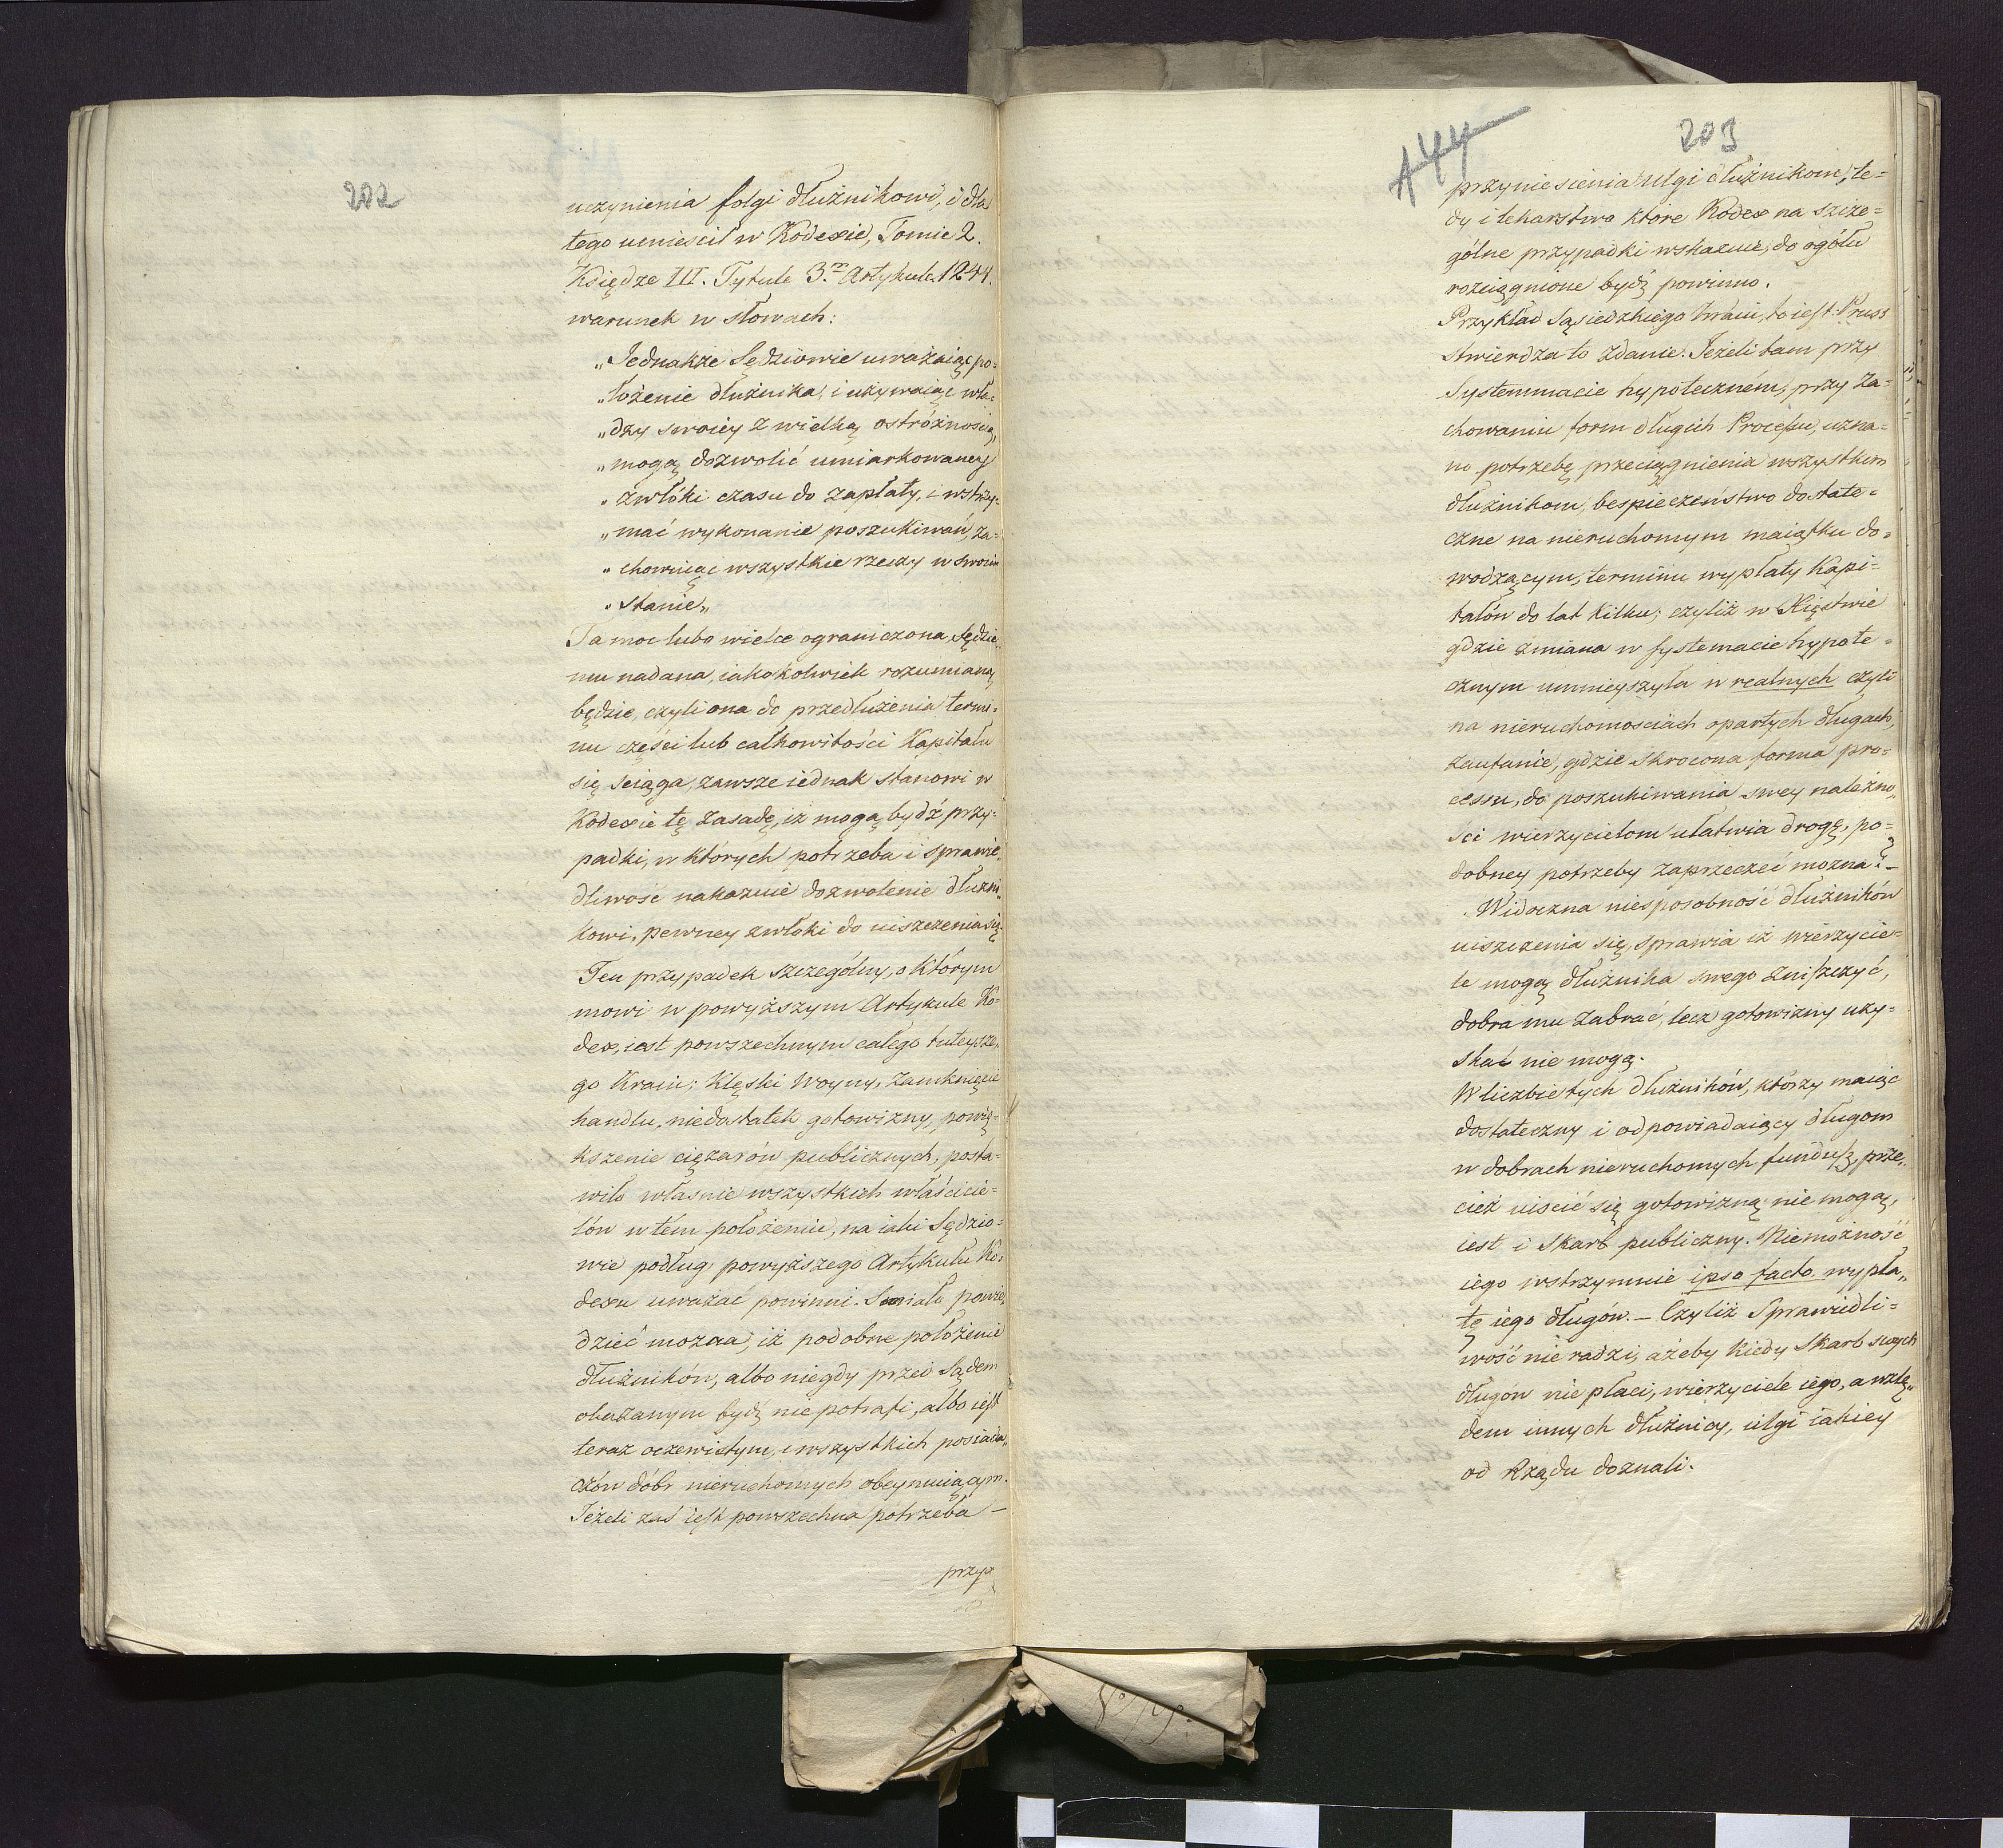 202
uczynienia folgi dłużnikowi, i dla
tego umieścił w Kodexie, Tomie 2.
Księdze III. Tytule 3.m Artykule 1244.
warunek w słowach:
„Jednakże Sędziowie uważaiąc po=
„łożenie dłużnika, i używaiąc wła=
„dzy swoiey z wielką ostróżnością,
„mogą dozwolić umiarkowaney
„zwłóki czasu do zapłaty, i wstrzy=
„mać wykonanie poszukiwań, za=
„chowuiąc wszystkie rzeczy w swoim
„stanie„
Ta moc lubo wielce ograniczona, Sędzie„
mu nadana, iakokolwiek rozumianą
będzie, czyli ona do przedłużenia termi=
nu części lub całkowitości Kapitału
się ściąga, zawsze iednak stanowi w
Kodexie tę zasadę, iż mogą bydź przy=
padki, w których potrzeba i sprawie„
dliwość nakazuie dozwolenie dłużni„
kowi, pewney zwłoki do uiszczenia się.
Ten przypadek szczególny, o którym
mowi w powyższym Artykule Ko=
dex, iest powszechnym całego tuteysze„
go Kraiu; Klęski Woyny, Zamknięcie
handlu, niedostatek gotowizny, powię=
kszenie ciężarów publicznych, posta=
wiło własnie wszystkich właścicie=
lów w tém położeniu, na iaki Sędzio=
wie podług powyższego Artykułu Ko=
dexu uważać powinni. Smiało powie„
dzieć można, iż podobne położenie
dłużników, albo niegdy przed Sądem
okazanym bydź nie potrafi, albo iest
teraz oczewistym, i wszystkich posiada„
czów dóbr nieruchomych obeymuiącym.
Jeżeli zaś iest powszechna potrzeba —
przy=
144
203
przyniesienia ulgi dłużnikom, te=
dy i lekarstwo które Kodex na szcze=
gólne przypadki wskazuie, do ogółu
rozciągnione bydź powinno.
Przykład Sąsiedzkiego Kraiu, to iest: Pruss
stwierdza to zdanie. Jeżeli tam przy
Systemmacie hypoteczném, przy za=
chowaniu form długich Processu, uzna=
no potrzebę przeciągnienia wszystkim
dłużnikom, bespieczeństwo dostate=
czne na nieruchomym maiątku do=
wodzącym, terminu wypłaty Kapi=
tałów do lat kilku; czyliż w Xięstwie
gdzie zmiana w systemacie hypote=
cznym umnieyszyła w realnych czyli
na nieruchomosciach opartych długach,
zaufanie, gdzie skrocona forma pro=
cessu, do poszukiwania swey należno„
ści wierzycielom ułatwia drogę, po=
dobney potrzeby zaprzeczeć można? —
Widoczna niesposobność dłużników
uiszczenia się, sprawia iż wierzycie=
le mogą dłużnika swego zniszczyć,
dobra mu zabrać, lecz gotowizny uzy=
skać nie mogą.
W liczbie tych dłużników, którzy maiąc
dostateczny i odpowiadaiący długom
w dobrach nieruchomych fundusz, prze„
cież uiścić się gotowizną nie mogą,
iest i Skarb publiczny. Niemożność
iego wstrzymuie ipso facto wypła„
tę iego długów. — Czyliż Sprawiedli=
wość nie radzi, ażeby kiedy Skarb swych
długów nie płaci, wierzyciele iego, a wzlę„
dem innych dłużnicy, ulgi iakiey
od Rządu doznali.